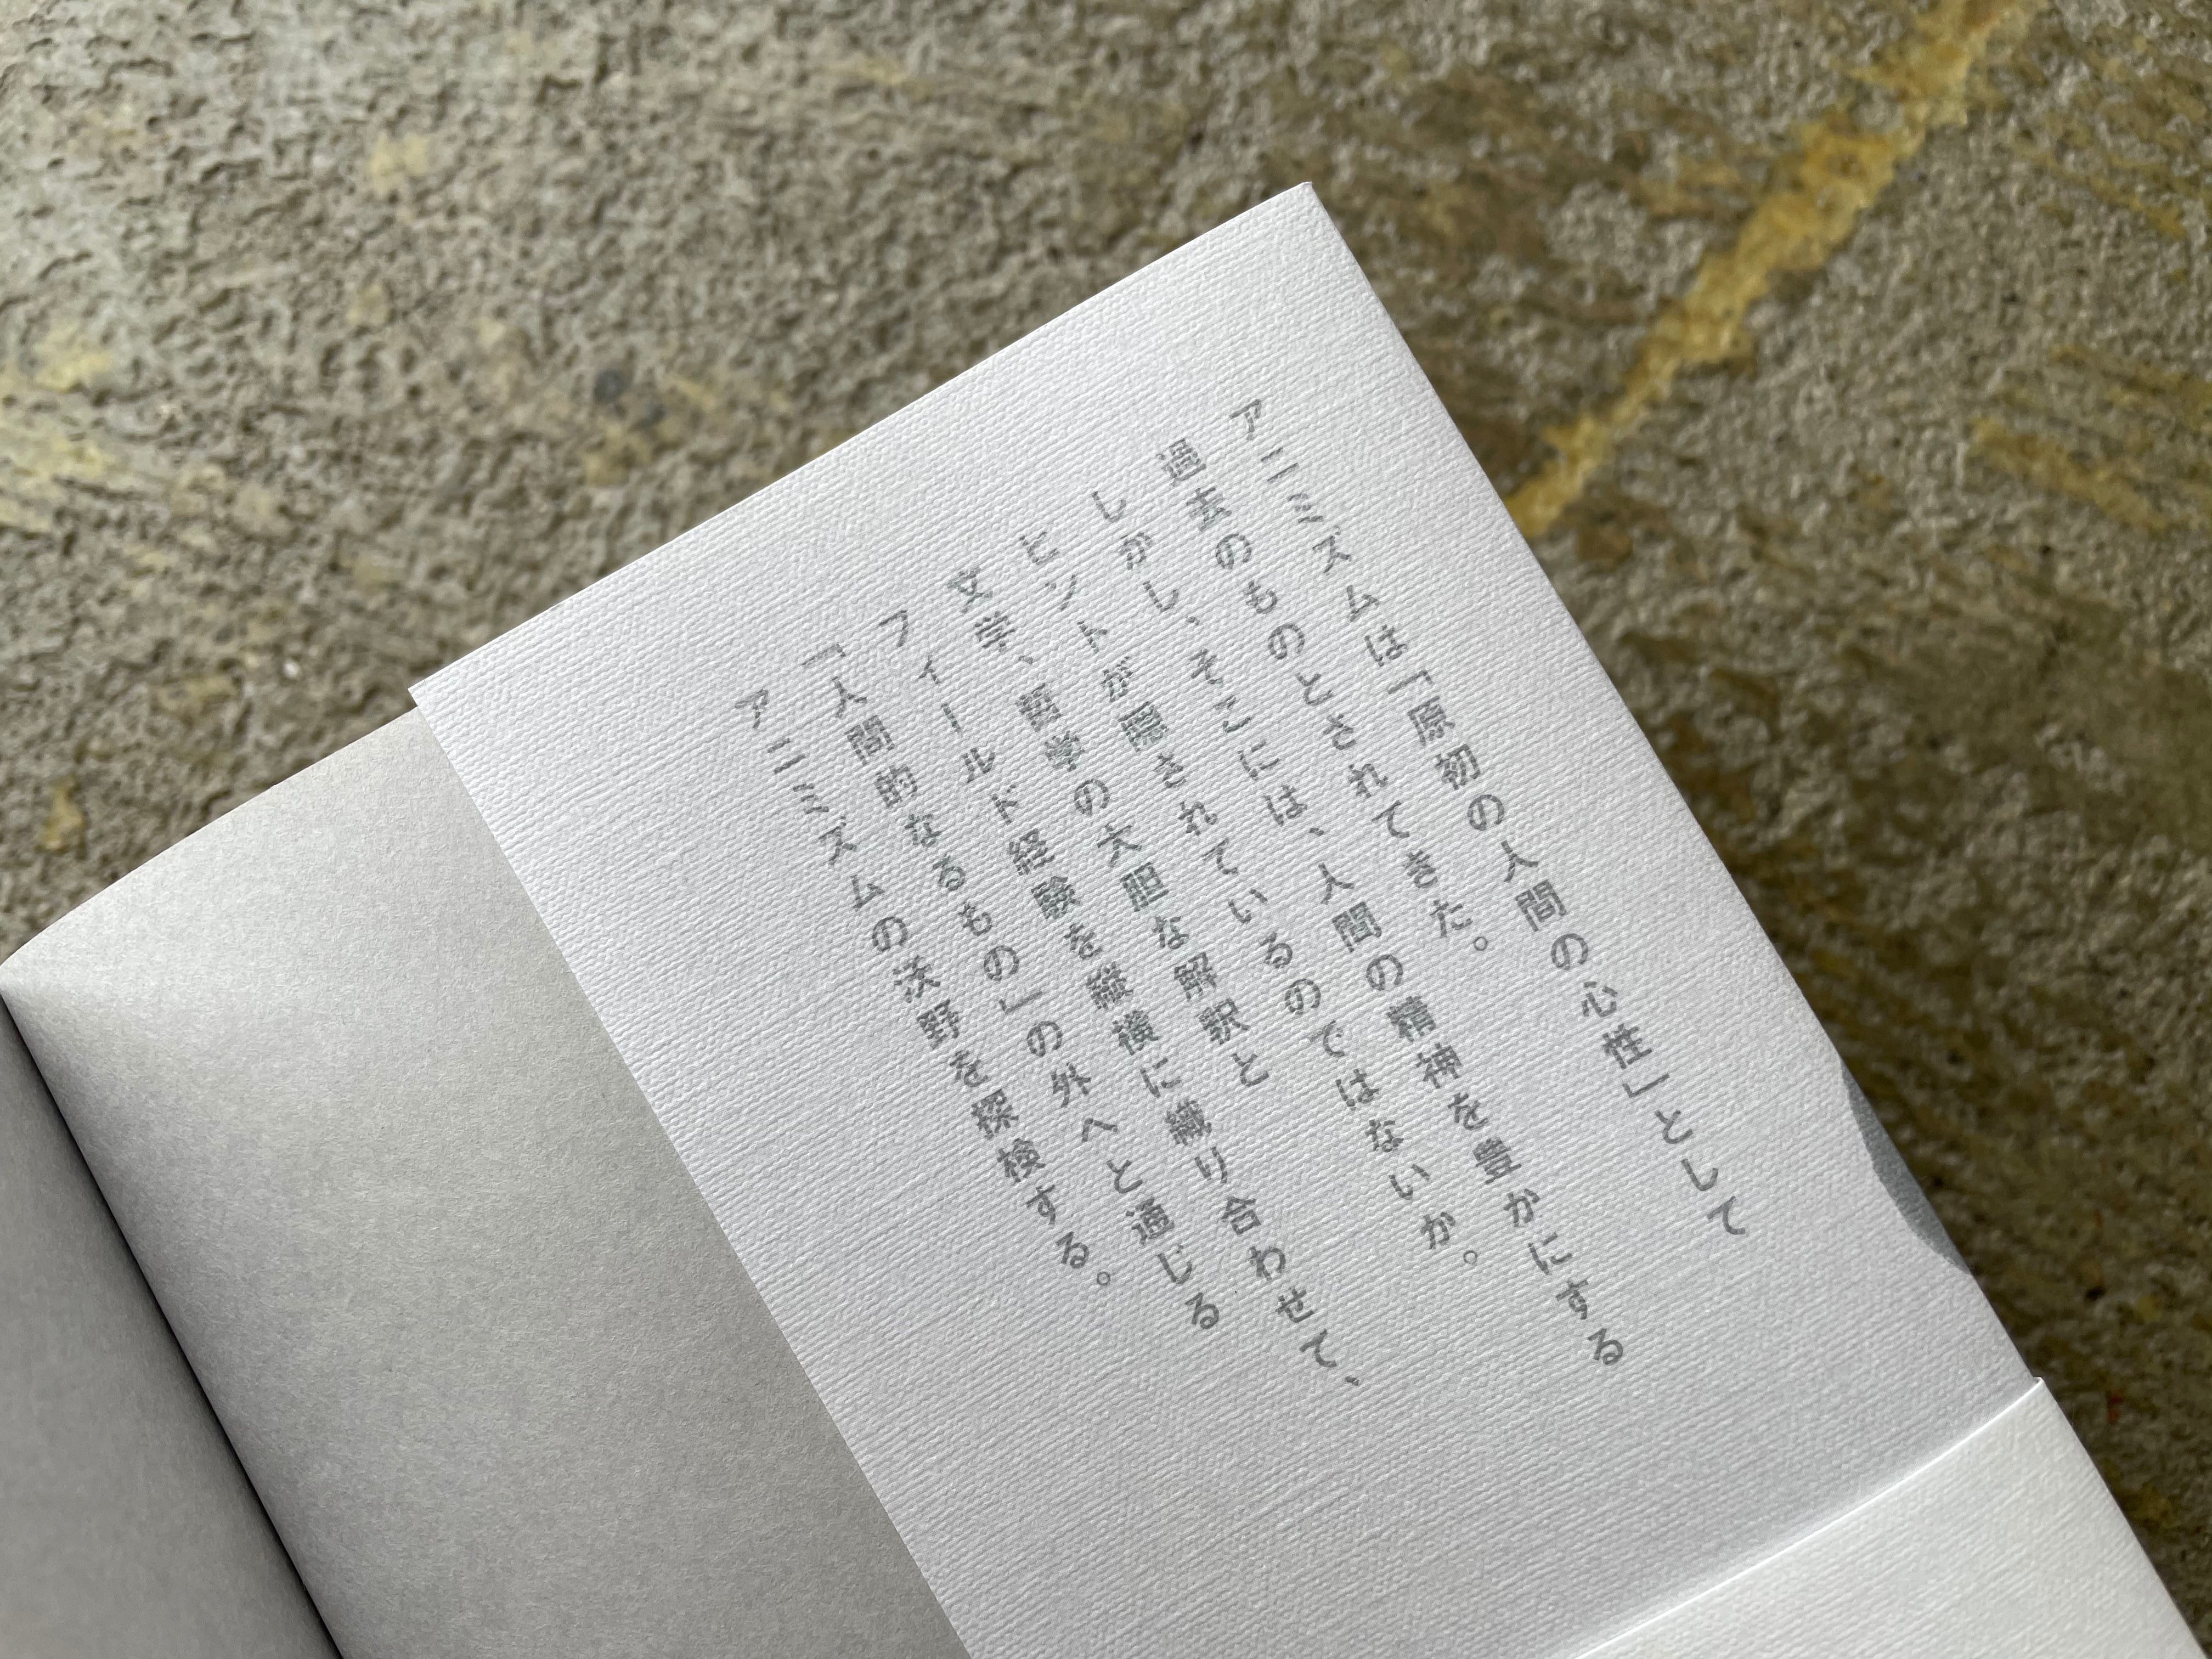 アニミズムは「原初の人間の心性」として
過去のものとされてきた。
しかし、そこには、人間の精神を豊かにする
ヒントが隠されているのではないか。
文学、哲学の大胆な解釈と
フィールド経験を縦横に織り合わせて、
「人間的なるもの」の外へと通じる
アニミズムの沃野を探検する。